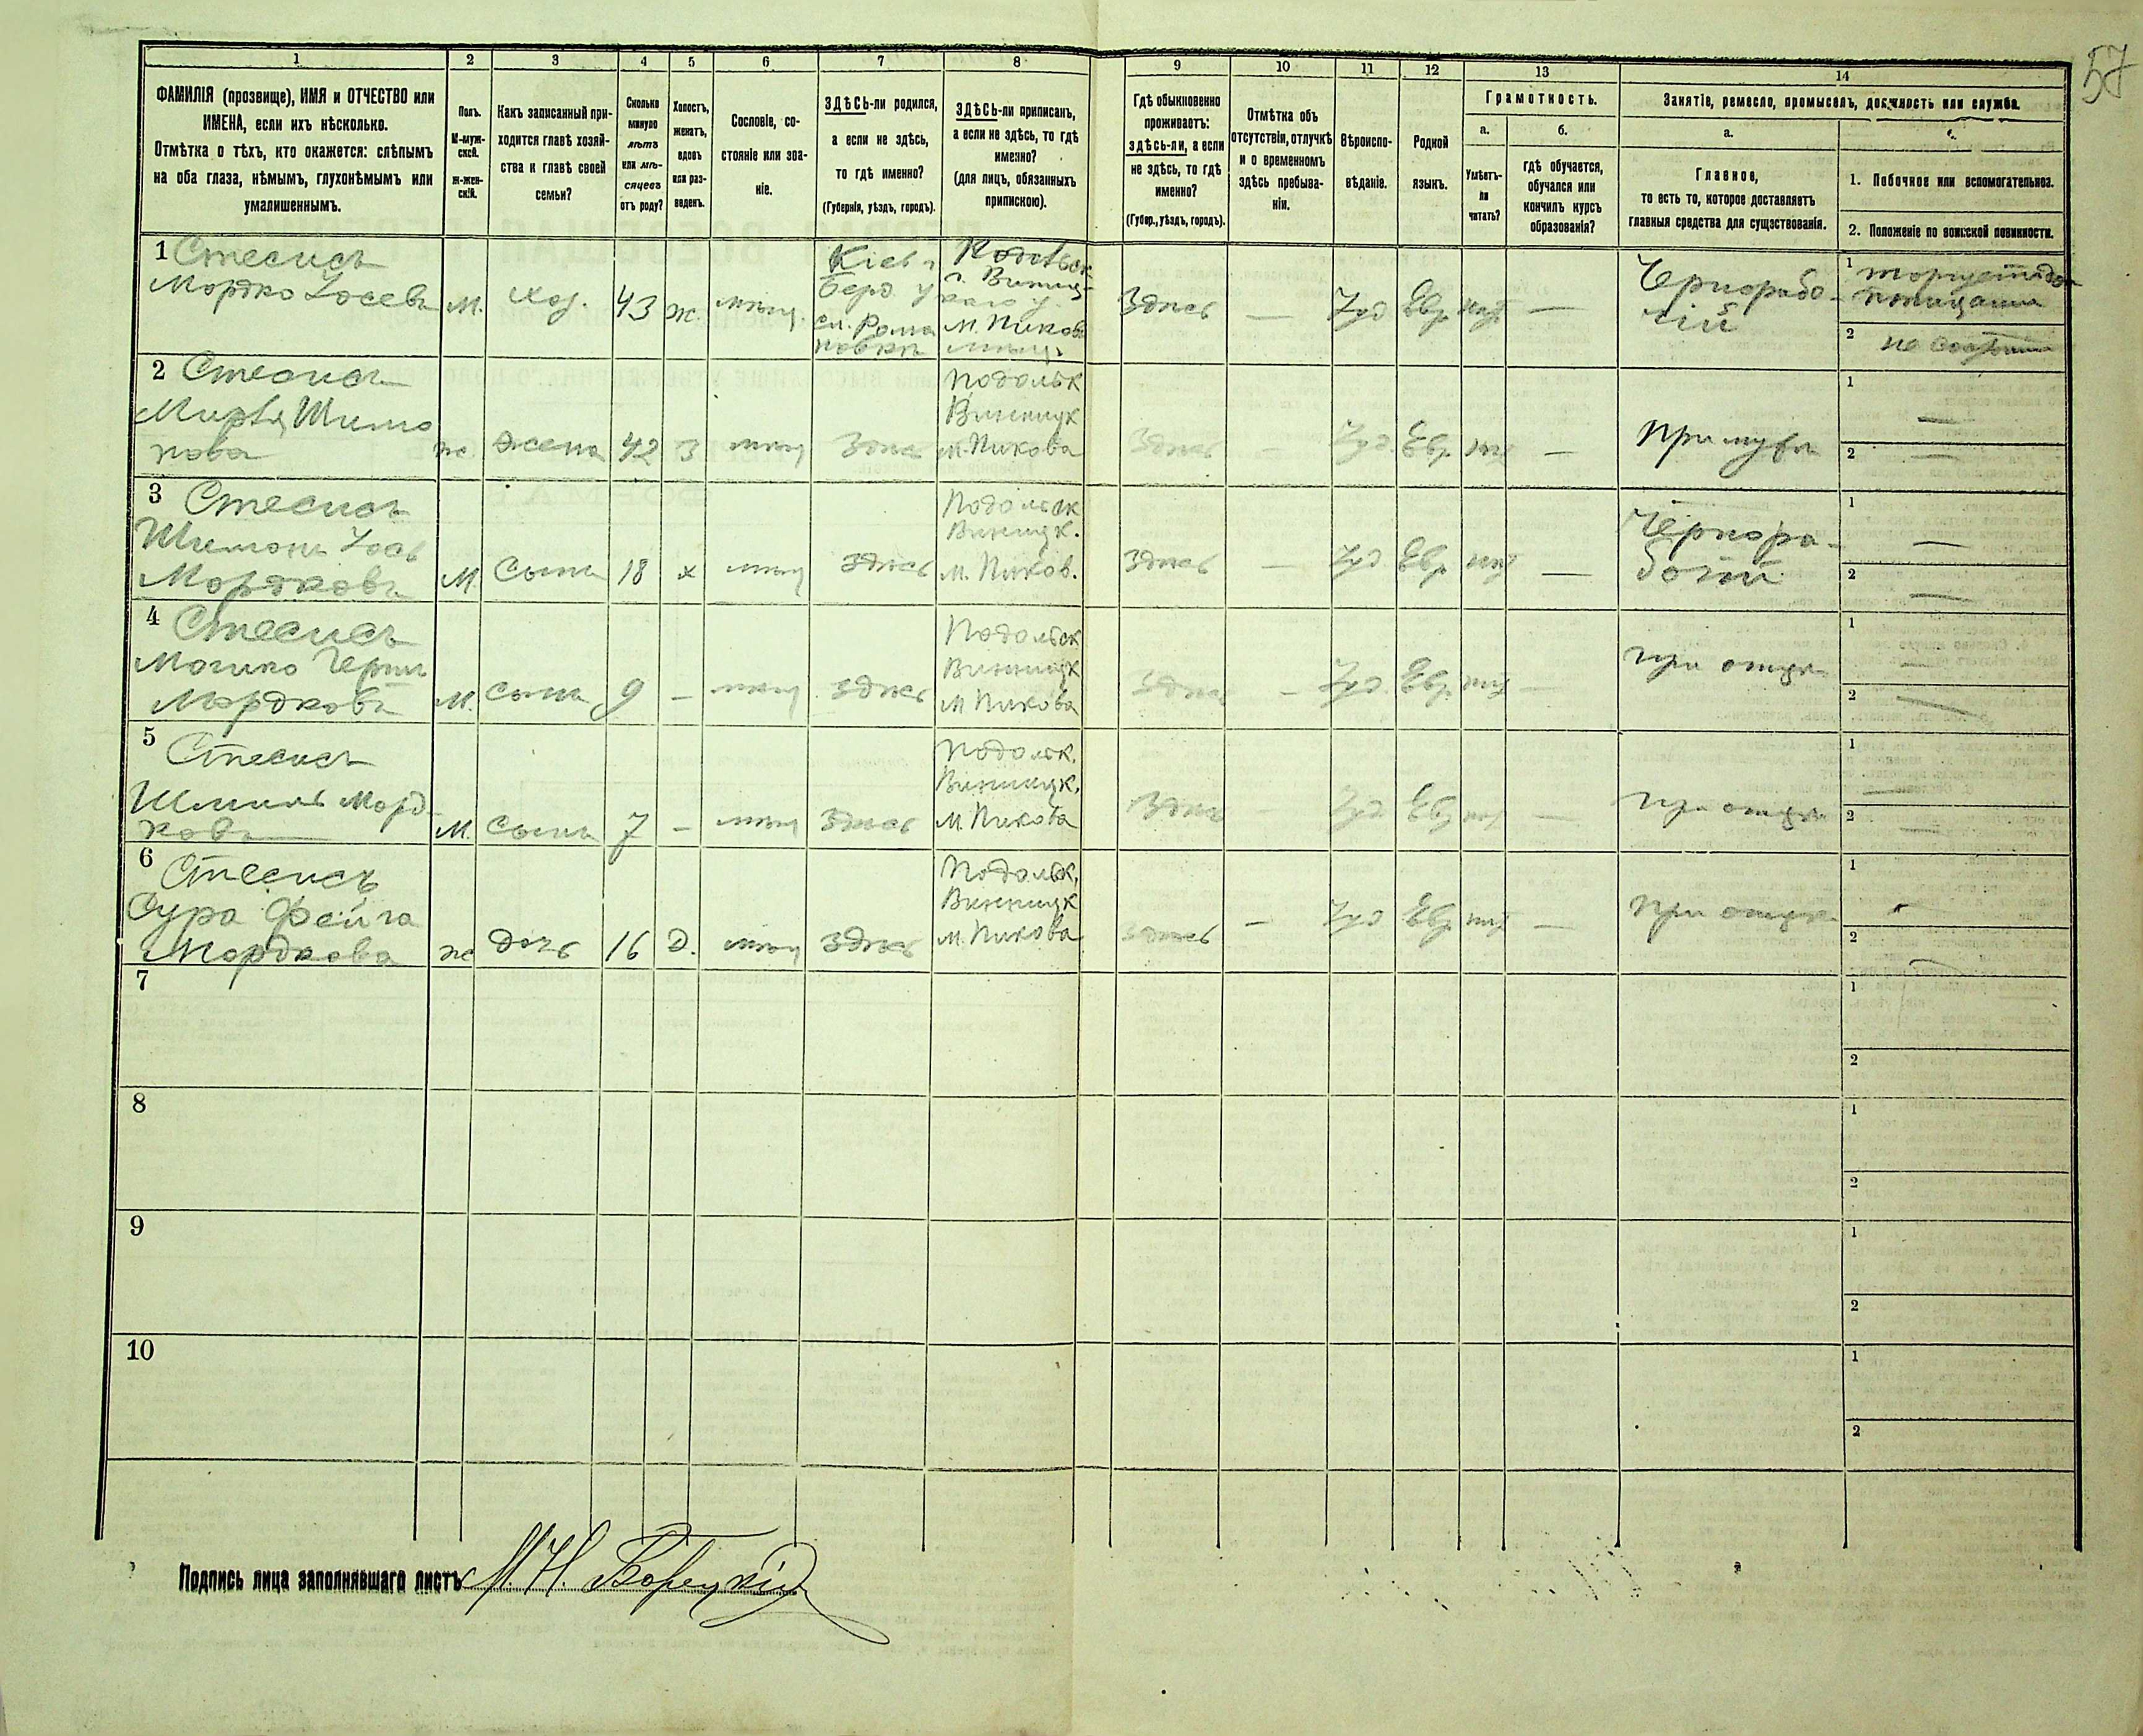 57
1 2 3 4 5 6 7 8 9 10 11 12 13 14
ФАМИЛІЯ (прозвище), ИМЯ и ОТЧЕСТВО или
ИМЕНА, если ихъ нѣсколько.
Отмѣтка о тѣхъ, кто окажется: слѣпымъ
на оба глаза, нѣмымъ, глухонѣмымъ или
умалишеннымъ.
Полъ.
М-муж-
ской.
ж-жен-
скій.
Какъ записанный при-
ходится главѣ хозяй-
ства и главѣ своей
семьи?
Сколько
минуло
лѣтъ
или мѣ-
сяцевъ
отъ роду?
Холостъ,
женатъ,
вдовъ
или раз-
веденъ.
Сословіе, со-
стояніе или зва-
ніе.
ЗДѢСЬ-ли родился,
а если не здѣсь,
то гдѣ именно?
(Губернія, уѣздъ, городъ).
ЗДѢСЬ-ли приписанъ,
а если не здѣсь, то гдѣ
именно?
(для лицъ, обязанныхъ
припискою).
Гдѣ обыкновенно
проживаетъ:
здѣсь-ли, а если
не здѣсь, то гдѣ
именно?
(Губер., уѣздъ, городъ).
Отмѣтка объ
отсутствіи, отлучкѣ
и о временномъ
здѣсь пребыва-
ніи.
Вѣроиспо-
вѣданіе.
Родной
языкъ.
Грамотность.
а.
Умѣетъ-
ли
читать?
б.
гдѣ обучается,
обучался или
кончилъ курсъ
образованія?
Занятіе, ремесло, промыселъ, должность или служба.
а.
Главное,
то есть то, которое доставляетъ
главныя средства для существованія.
1. Побочное или вспомогательное.
2. Положеніе по воинской повинности.
1 Стесисъ
Мордко Іосевъ
М.
Хоз.
43
ж
мѣщ.
Кіев г
Берд у
Рома
новки
г. Виниц-
каго у.
м. Пиков
мѣщ.
Здѣсь
—
Іуд
Евр
нѣт
—
Чернорабо-
чій
1
2
2 Стесисъ
Шимо
нова
ж
жена
42
З
мѣщ
Здѣсь
Подольск
Винницк
м. Пикова
Здѣсь
—
Іуд.
Евр
нѣт
—
При мужѣ
1 —
2 —
3 Стесисъ
Шимонъ Іось
Мордковъ
М.
Сынъ
18
х
мѣщ
здѣсь
Подольск
Виницк.
м. Пиков.
Здѣсь
—
Іуд
Евр
нѣт
—
Чернора-
бочій
1 —
2 —
4 Стесисъ
Мордковъ
М.
сынъ
9
—
мѣщ
здѣсь
Подольск
Винницк
м Пикова
Здѣсь
—
Іуд.
Евр.
нѣт
—
при отцѣ
1 —
2 —
5 Стесисъ
Шмиль Морд-
ковъ
М.
Сынъ
7
—
мѣщ
Здѣсь
Подольск.
Виницк.
м. Пикова
Здѣсь
—
Іуд
Евр
нѣт
—
при отцѣ
1 —
2 —
6 Стесисъ
Сура Фейга
Мордкова
ж
дочь
16
Д.
мѣщ
здѣсь
Подольск.
Винницк
м. Пикова
Здѣсь
—
Іуд
Евр
нѣт
—
при отцѣ
1
2
7
1
2
8
1
2
9
1
2
10
1
2
Подпись лица заполнявшаго листъ